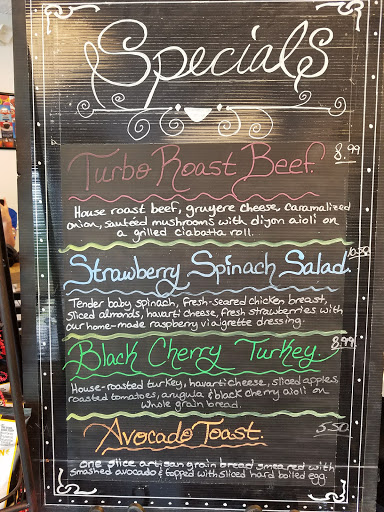 Specials
Turbo Roast Beef 8.99
House roast beef, gruyere cheese, caramalized
onion, sautéed mushrooms with dijon aioli on
a grilled ciabatta roll.
Strawberry Spinach Salad 10.50
Tender baby spinach, fresh-seared chicken breast,
sliced almonds, havarti cheese, fresh strawberries with
our home-made raspberry viaigrette dressing.
Black Cherry Turkey 8.99
House-roasted turkey, havarti cheese, sliced apples,
roasted tomatoes, arugula & black cherry aioli on
whole grain bread.
Avocado Toast 5.50
one slice artisan grain bread smeared with
smashed avocado & topped with sliced hard boiled egg.